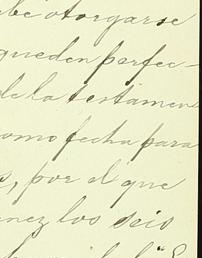 be otorgarse
queden perfec-
de la testamen
como fecha para
s, por el que
nez los seis